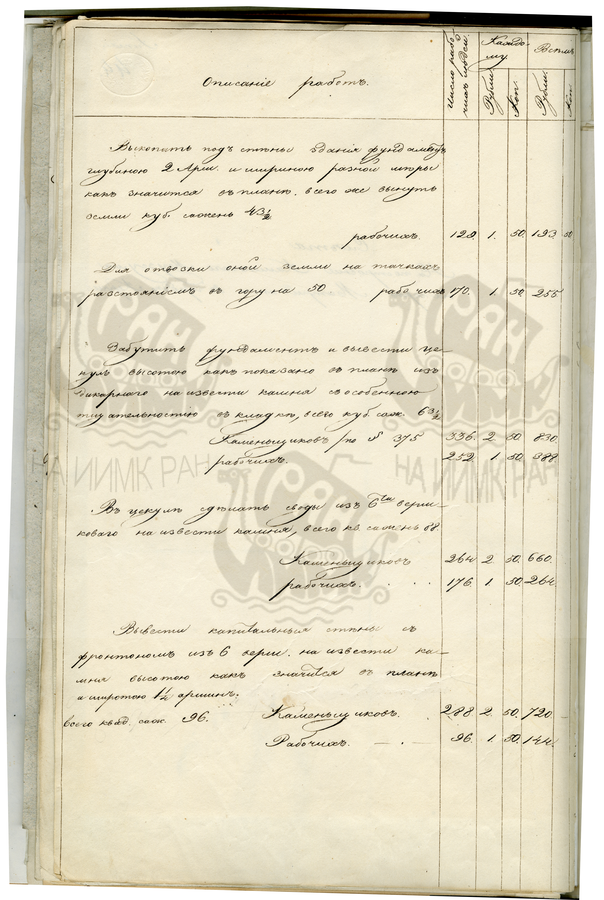 Описаніе работъ.
Число рабочихъ людей.
Каждому.
Всѣмъ
Рубли.
Коп.
Рубли.
Коп.
Выкопать подъ стѣны зданія фундаментъ
глубиною 2 Арш. и шириною разной мѣры
какъ значится въ планѣ. всего же вынуть
земли куб. сажень 43½
рабочихъ. 129. 1. 50. 193. 50
Для отвозки оной земли на тачкахъ
разстояніемъ въ гору на 50 рабочихъ 170. 1. 50. 255
Забутить фундаментъ и вывести цо-
куль высотою какъ показано въ планѣ изъ
дикарнаго на извести камня съ особенною
тщательностію въ кладкѣ, всего куб. саж. 63½
Каменьщиковъ по № 375 336. 2. 50. 830.
рабочихъ. 252. 1. 50. 388.
Въ цокулѣ сдѣлать своды изъ 6ти верш-
коваго на извести камня, всего кв. сажень 88
Каменьщиковъ 264. 2. 50. 660.
рабочихъ. 176. 1. 50. 264.
Вывести капитальныя стѣны съ
фронтономъ изъ 6 верш. на извести ка-
мня высотою какъ значится въ планѣ
а широтою 1½ аршинъ.
всего квад. саж. 96. Каменьщиковъ. 288. 2. 50. 720.
Рабочихъ. 96. 1. 50. 144.
РАН
ИИМК
НА ИИМК РАН
НА ИИМК РАН